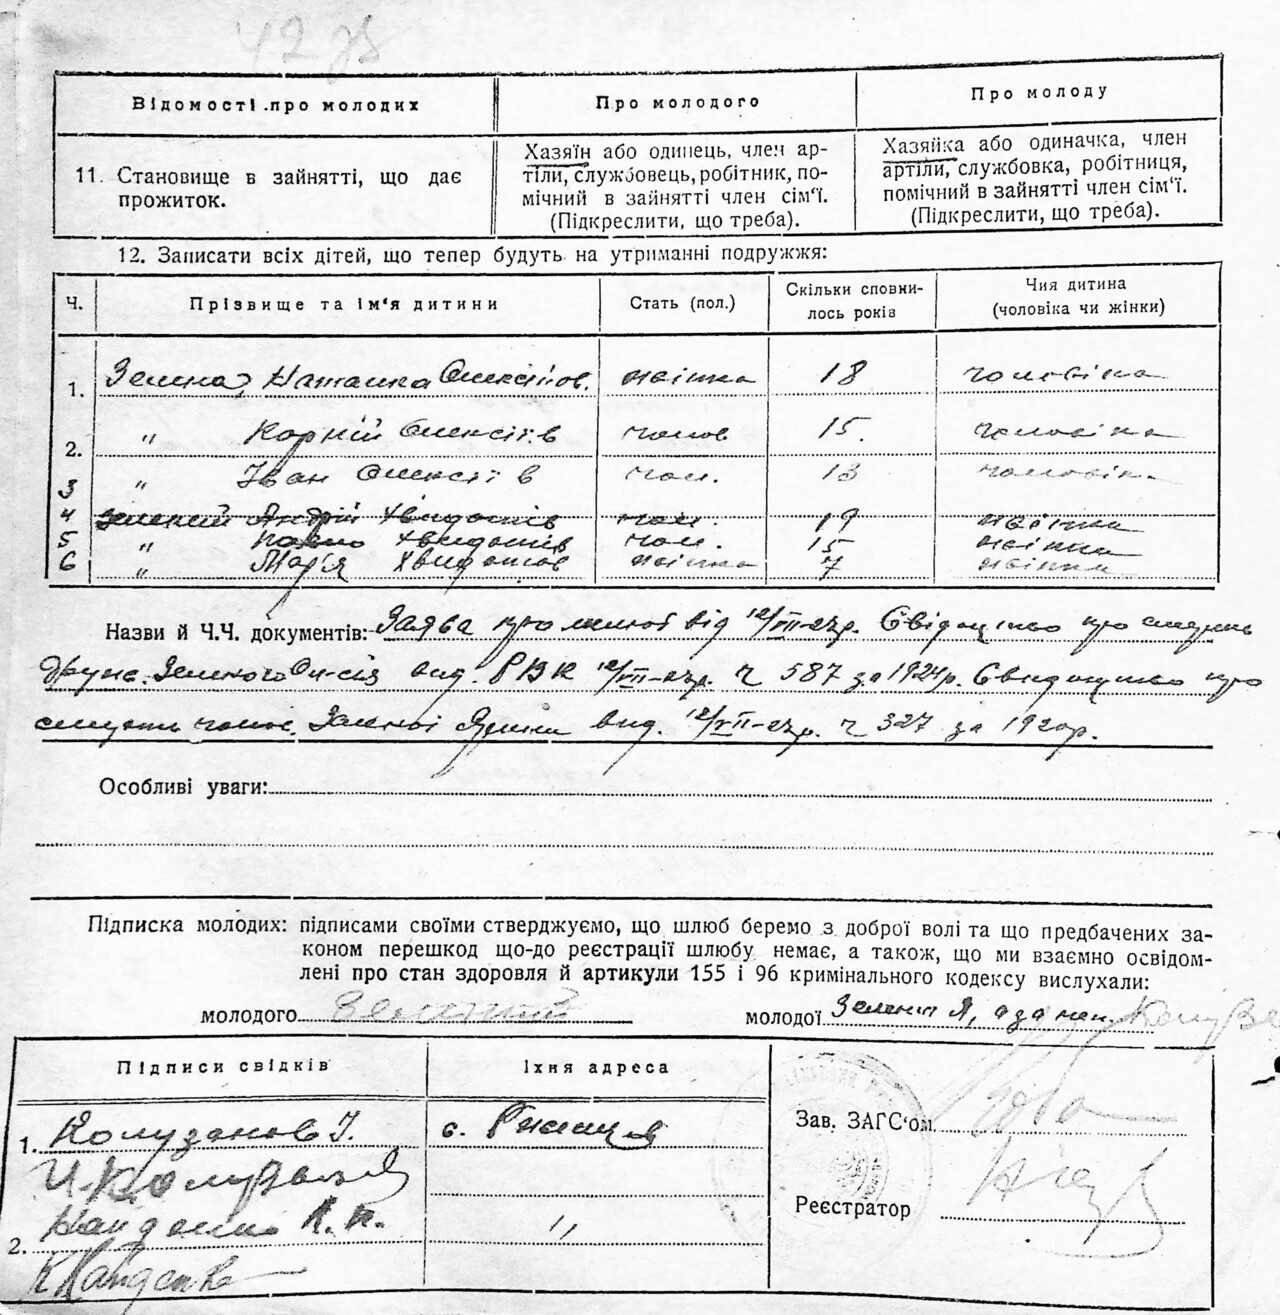 42 зв
Відомості про молодих
Про молодого
Про молоду
11. Становище в зайнятті, що дає прожиток.
Хазяїн або одинець, член ар-
тіли, службовець, робітник, по-
мічний в зайнятті член сім'ї.
(Підкреслити, що треба).
Хазяйка або одиначка, член
артіли, службовка, робітниця,
помічний в зайнятті член сім'ї.
(Підкреслити, що треба).
12. Записати всіх дітей, що тепер будуть на утриманні подружжя:
Ч.
Прізвище та ім'я дитини
Стать (пол.)
Скільки сповни-
лось років
Чия дитина
(чоловіка чи жінки)
1. Зелена, Наталка Олексіїов. жінка 18 чоловіка
2. " Корній Олексіїв чолов 15. чоловіка
3 " Іван Олексіїв чол. 13 чоловік.
4 Зелений Андрій Хведосів чол. 19 жінка
5 " Павло Хведосів чол. 15 жінки
6 " Мар'я Хведосов жінка 7 жінки
Назви й Ч.Ч. документів: Заява про шлюб від 12/VII-27р. Свідоцтво про смерть
друж. Зеленого Ол-сія вид. РВК 12/VII-27р. Ч 587 за 1924р. Свидоцтво про
смерть чолов. Зеленої вид. 12/VII-27р. Ч 327 за 1920р.
Особливі уваги:
Підписка молодих: підписами своїми стверджуємо, що шлюб беремо з доброї волі та що предбачених за-
коном перешкод що-до реєстрації шлюбу немає, а також, що ми взаємно освідом-
лені про стан здоровля й артикули 155 і 96 кримінального кодексу вислухали:
молодого Зелений молодої Зелена Я, а за неп.
Підписи свідків
Їхня адреса
1. Колузанов І. с.
2. Найденко К. П. "
К Найденко
Зав. ЗАГС'ом
Реєстратор